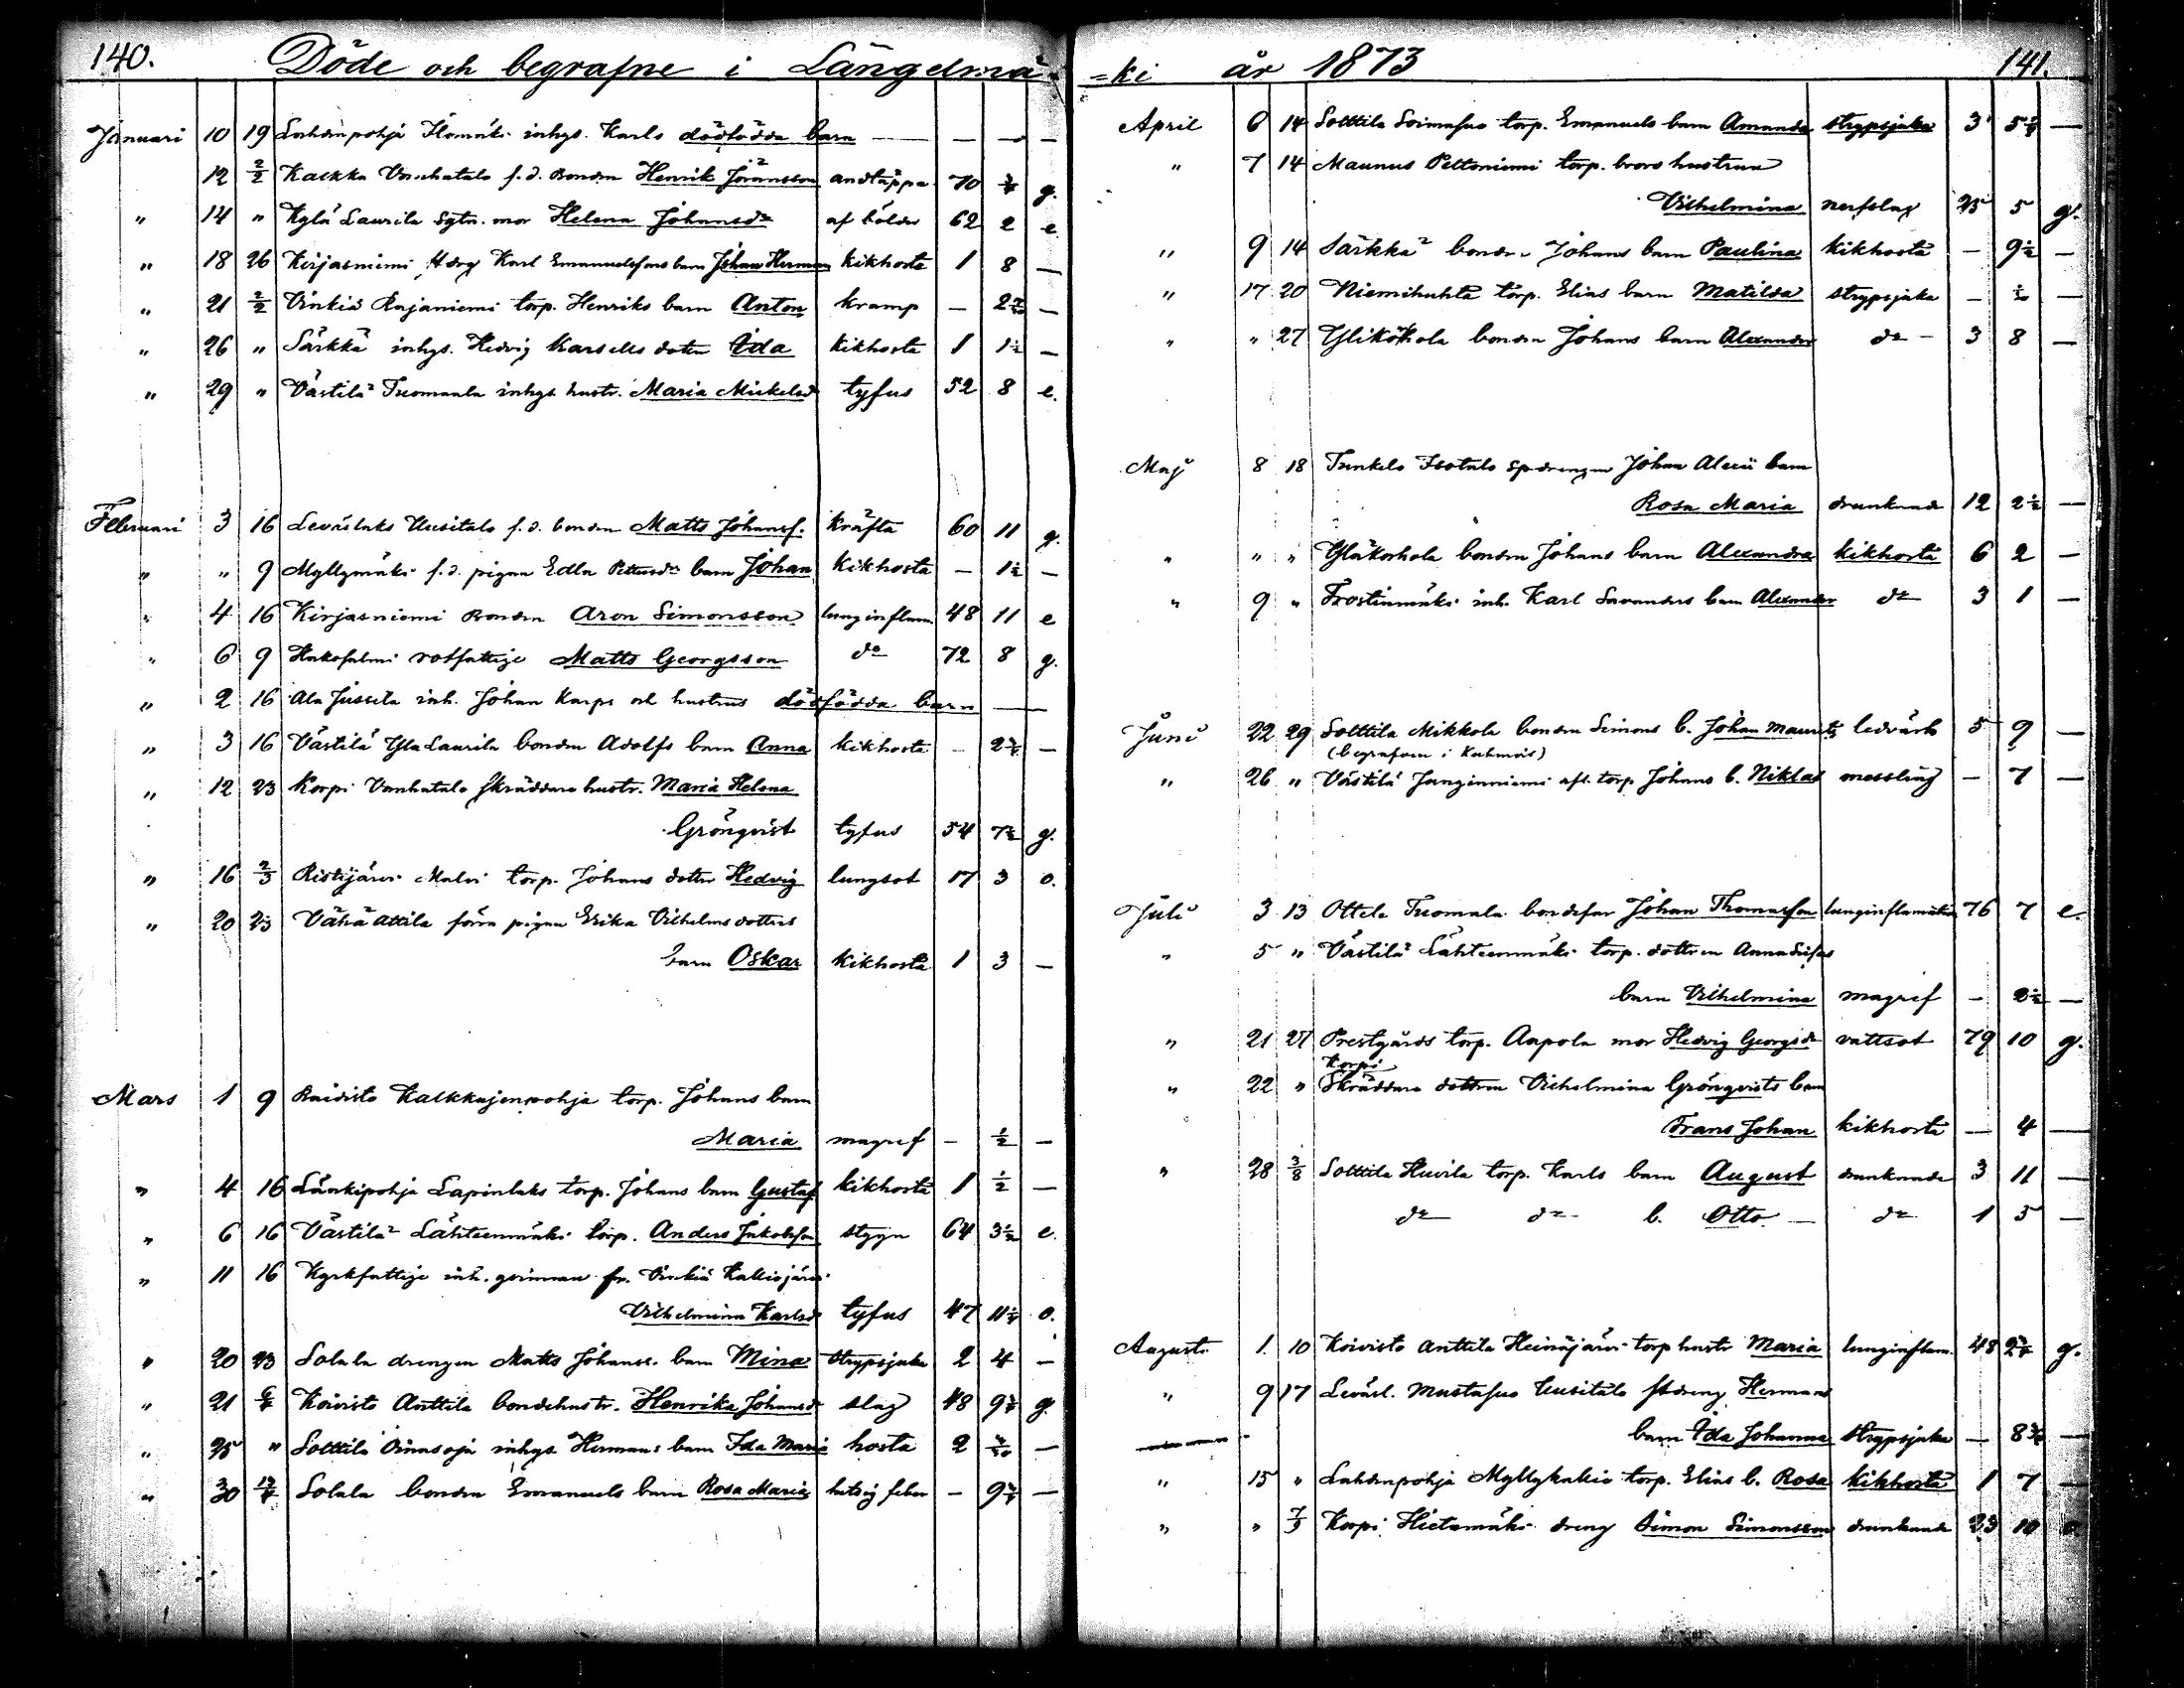 140.
Döde och begrafne i Längelmä-
Januari 10 19 Lahdenpohja inhys. Karls dödfödda barn — — — —
12 2/2 Kalkka f.d. Bonden Henrik Jöransson andtäppa 70 g.
" 14 " Kylä Laurila Sytn. mor Helena Johansdr af bölder 62 2 e
" 18 26 Kirjasniemi Karl Emanuelssons barn Johan Herman kikhosta 1 8 —
" 21 2/2 Vinkiä Rajaniemi torp. Henriks barn Anton kramp — —
" 26 " Särkkä inhys. Hedvig Karsells dotter Ida kikhosta 1 1½ —
" 29 " Västilä Tuomaala inhys. hustr. Maria Mickelsdr tyfus 52 8 e.
Februari 3 16 Leväslaks Uusitalo f.d. bonden Matts Johansf. kräfta 60 11 g.
" " 9 Myllymäki f.d. pigan Edla Pettersdr barn Johan kikhosta — 1½ —
" 4 16 Kirjasniemi Bonden Aron Simonsson lunginflam. 48 11 e
" 6 9 Hakosalmi rotfattige Matts Georgsson do 72 8 g.
" 2 16 Ala Jussila inh. Johan Karps och hustrus dödfödda barn —
" 3 16 Västilä Yla Laurila bonden Adolfs barn Anna kikhosta — —
" 12 23 Korpi Vanhatalo Skräddare hustr. Maria Helena
Grönqvist tyfus 54 7½ g.
" 16 2/3 Ristijärvi Malvi torp. Johans dotter Hedvig lungsot 17 3 o.
" 20 23 Vähä Attila förra pigan Erika Vilhelmsdotters
barn Oskar kikhosta 1 3 —
Mars 1 9 Raidisto Kalkkajenpohja torp. Johans barn
Maria magref — ½ —
" 4 16 Länkipohja Lapinlaks torp. Johans barn Gustaf kikhosta 1 ½ —
" 6 16 Västilä Lähteenmäki torp. Anders Jakobsson stygn 64 3½ e.
" 11 16 Kyrkfattige inh. qvinnan fr. Vinkiä Kalliojärvi
Vilhelmina Karlsdr tyfus 47 o.
" 20 23 Solala drengen Matts Johanss. barn Mina strypsjuka 2 4 —
" 21 6/4 Koivisto Anttila bondehustr. Henrika Johansdr slag 48 g.
" 25 " Solttila Oinasoja inhys. Hermans barn Ida Maria hosta 2 —
" 30 Solala bonden Emanuels barn Rosa Maria hetsig feber — —
=ki år 1873 141.
April 6 14 Solttila torp. Emanuels barn Amanda strypsjuka 3 —
" 7 14 Maunus Peltoniemi torp. brors hustrun
Vilhelmina nerfslag 25 5 g.
" 9 14 Särkkä bonden Johans barn Paulina kikhosta — 9½ —
" 17 20 Niemihuhta torp. Elias barn Matilda strypsjuka — —
" " 27 bonden Johans barn Alexander do — 3 8 —
Maj 8 18 Johan barn
Rosa Maria drunknade 12 2½ —
" " " bonden Johans barn Alexandra kikhosta 6 2 —
" 9 " inh. Karl Savanders barn Alexander do 3 1 —
Juni 22 29 Solttila Mikkola bonden Simons b. Johan Maurits ledvärk 5 9 —
(begrafven i Kuhmois)
" 26 " Västilä Junginniemi aft. torp Johans b. Niklas messling — 7 —
Juli 3 13 Ottila Tuomala bondefar Johan Thomasson lunginflamation 76 7 e.
" 5 " Västilä Lähteenmäki torp. dottren Anna Sofias
barn Vilhelmina magref — 2½ —
" 21 27 Prestgårds torp. Aapola mor Hedvig Georgsdr vattsot 79 10 g.
Korpi
" 22 " Skräddare dottren Vilhelmina Grönqvists barn
Frans Johan kikhosta — 4 —
" 28 3/8 Solttila Huvila torp. Karls barn August drunknade 3 11 —
do do b. Otto — do 1 5 —
Augusti 1 10 Koivisto Anttila Heinäjärvi torp hustr Maria lunginflam. 48 g.
" 9 17 Leväsl. Mustasuo Uusitalo Hermans
barn Ida Johanna strypsjuka — —
" 15 " Lahdenpohja Myllykallio torp. Elias b. Rosa kikhosta 1 7 —
" " 7/9 Korpi Hietamäki dreng Simon Simonsson drunknade 23 10